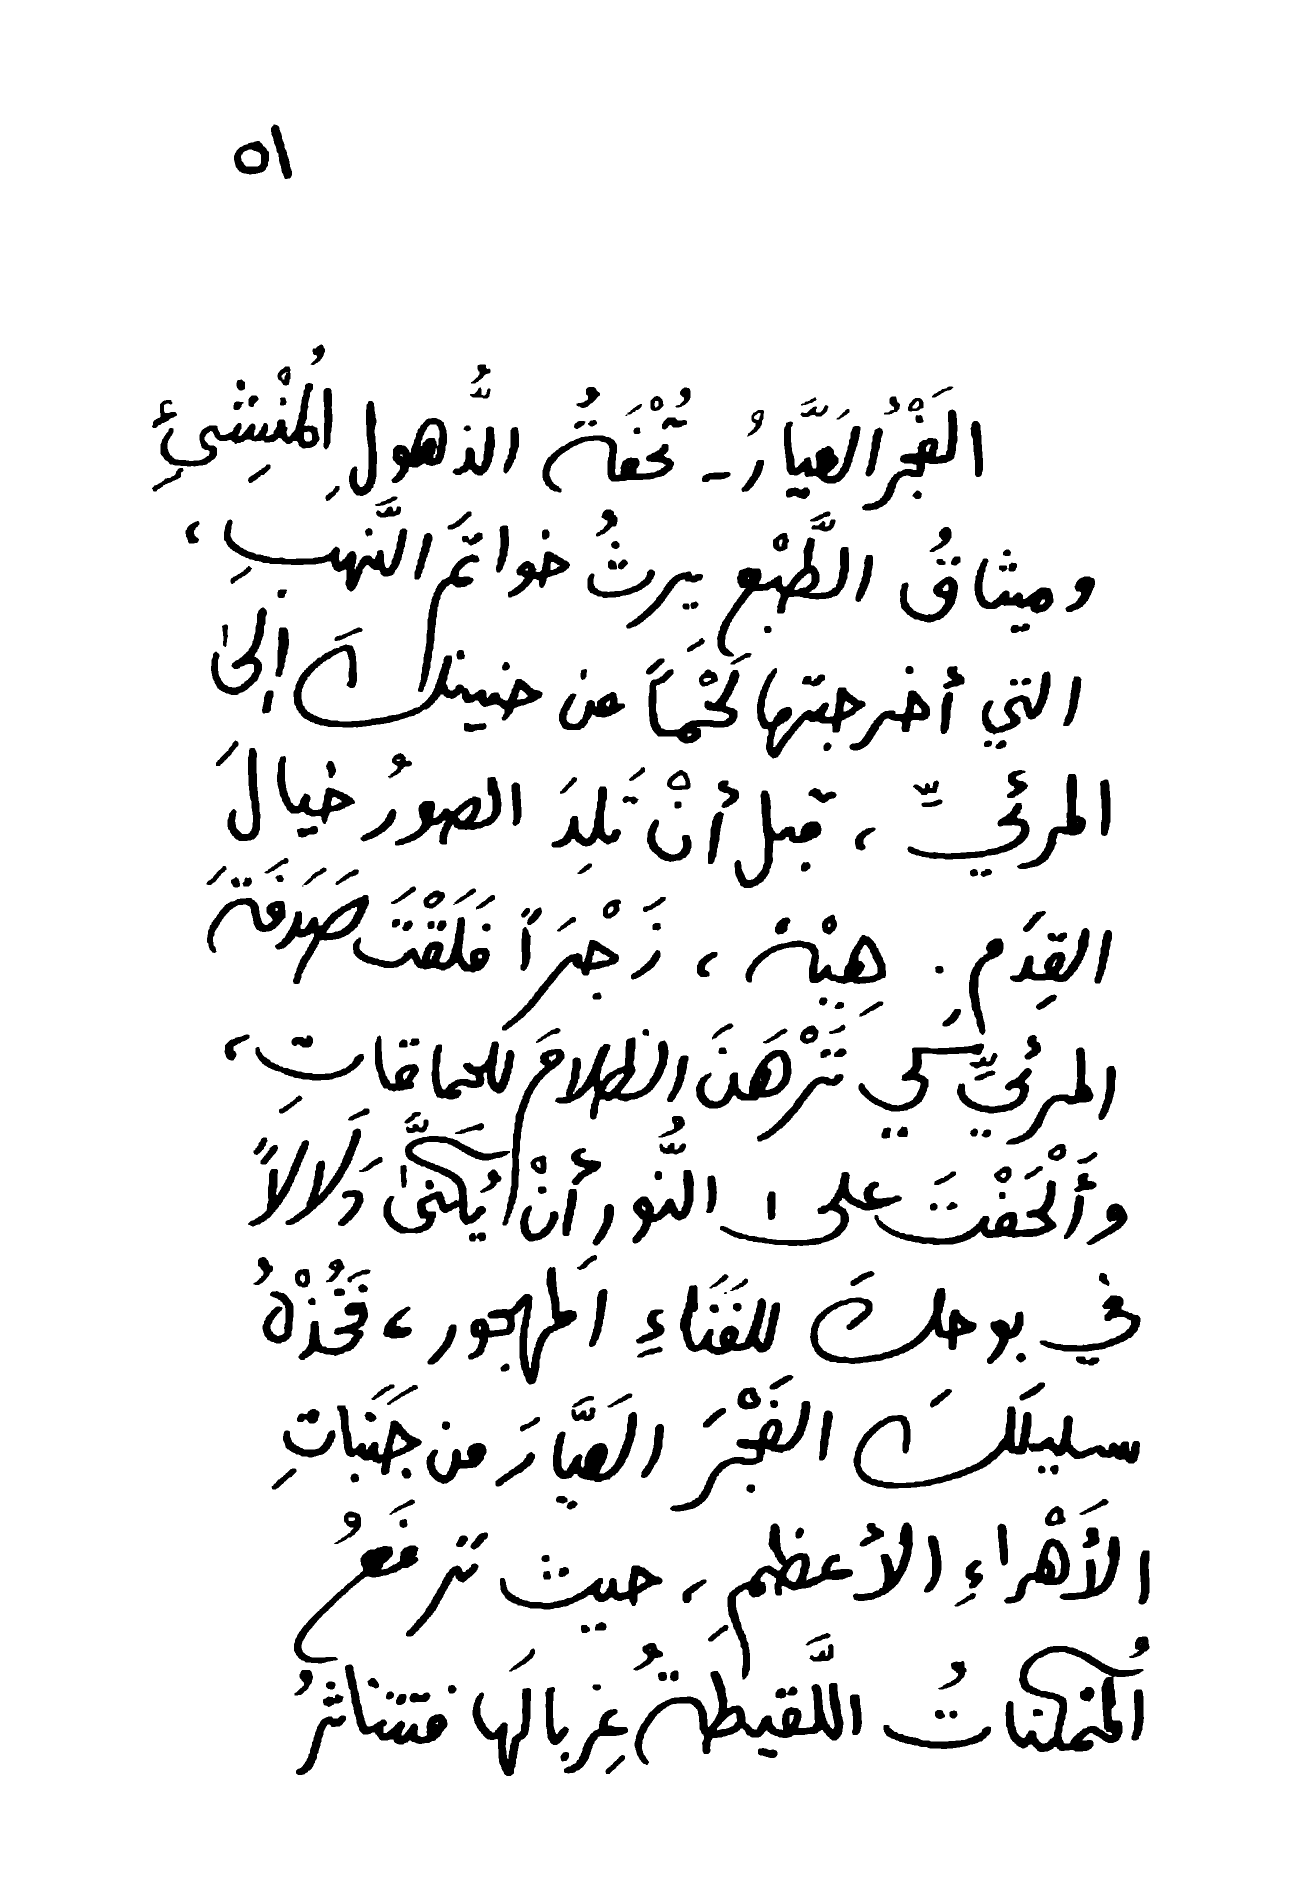 ٥١
الفَجْرُ العَيَّارُ - تُحْفَةُ الذُّهولِ المُنْشِئِ
وميثاقُ الطَّبْعِ يرثُ خواتمَ النَّهبِ،
التي أخرجتها لَحْماً من حنينكَ إلىٰ
المرئيِّ، قبل أنْ تلِدَ الصورُ خيالَ
القِدَمِ. هِبْهُ، زَجْرَاً فَلَقْتَ صَدَفَةَ
المرئيِّ كي تَرْهَنَ الظلامَ للحماقاتِ،
وأَلْحَفْتَ على النُّورِ أنْ يُكنَّىٰ دَلَالاً
في بوحكَ للفَنَاءِ المهجور، فَخُذْهُ
سليلَكَ الفَجْرَ العَيَّارَ من جَنَباتِ
الأَهْراءِ الأعظمِ، حيث ترفَعُ
المُمكناتُ اللَّقيطةُ غِربالَها فتتناثرُ